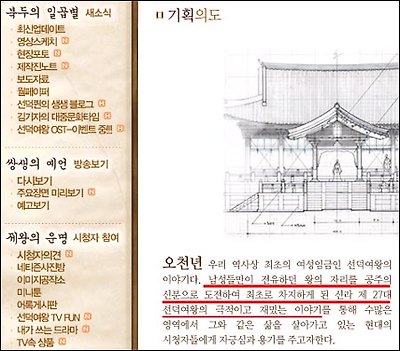 북두의 일곱별 새소식
최신업데이트
영상스케치 N
현장포토 N
제작진노트 N
보도자료
월페이퍼
선덕퀸의 생생 블로그 N
김기자의 대중문화타임 N
선덕여왕 OST-이벤트 중!! N
쌍생의 예언 방송보기
다시보기
주요장면 미리보기 N
예고보기
제왕의 운명 시청자 참여
시청자의견 N
네티즌사진방
이미지공작소
미니툰
어록게시판
선덕여왕 TV FUN N
내가 쓰는 드라마 N
TV속 상품 N
기획의도
오천년 우리 역사상 최초의 여성임금인 선덕여왕의
이야기다. 남성들만이 전유하던 왕의 자리를 공주의
신분으로 도전하여 최초로 차지하게 된 신라 제 27대
선덕여왕의 극적이고 재밌는 이야기를 통해 수많은
영역에서 그와 같은 삶을 살아가고 있는 현대의
시청자들에게 자긍심과 용기를 주고자한다.